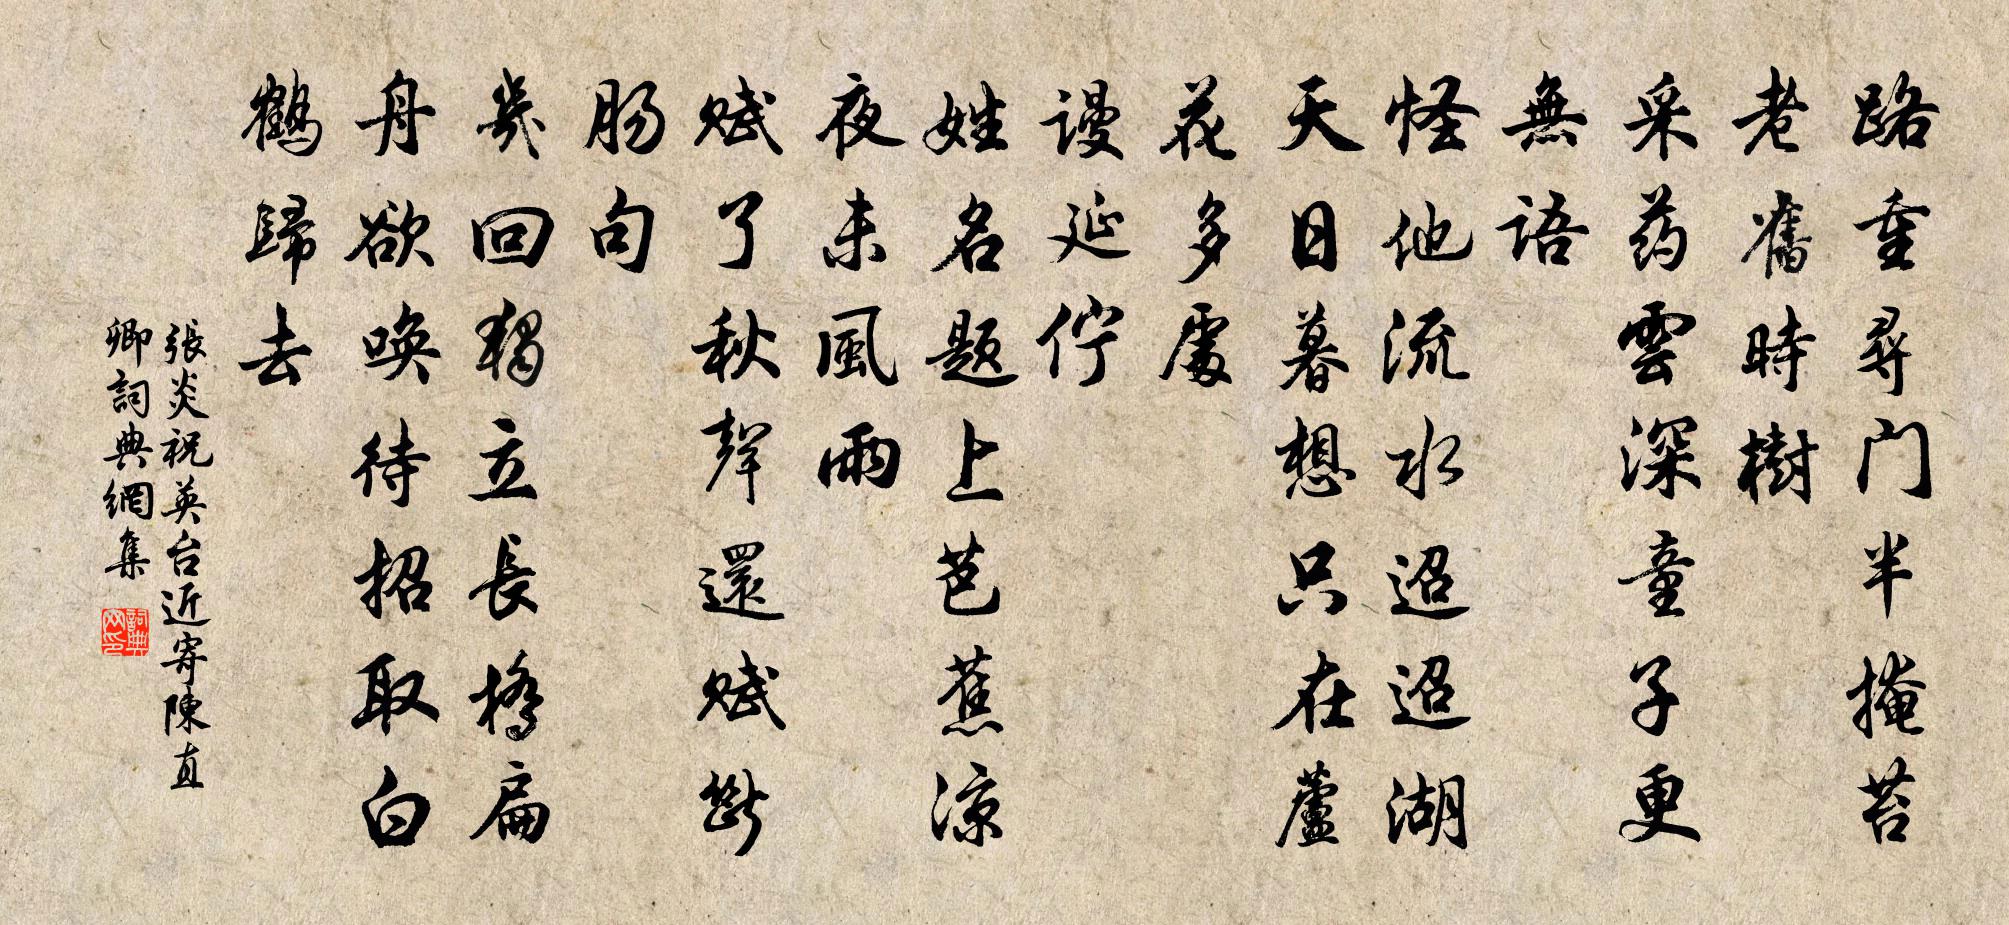 路重尋门半掩苔
老舊時樹
采药雲深童子更
無語
怪他流水迢迢湖
天日暮想只在蘆
花多處
謾延佇
姓名题上芭蕉涼
夜未風雨
赋了秋聲還赋斷
肠句
幾回獨立長橋扁
舟欲唤待招取白
鶴歸去
張炎祝英台近寄陳直
卿詞典網集
詞典网印